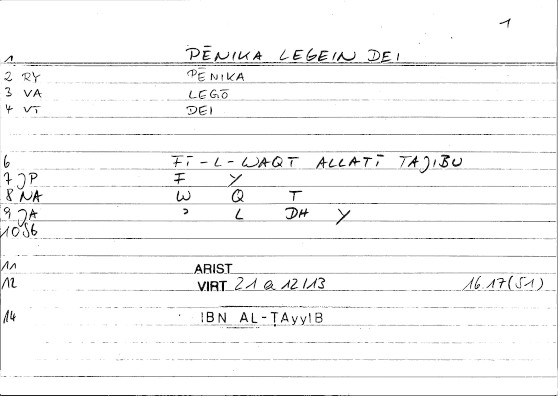 1
1 PĒNIKA LEGEIN DEI
2 RY PĒNIKA
3 VA LEGŌ
4 VT DEI
6 FĪ-L-WAQT ALLATĪ TAJIBU
7 JP F Y
8 NA W Q T
9 JA ʾ L DH Y
10 S6
11 ARIST
12 VIRT 21 a 12/13 16.17(S1)
14 IBN AL-ṬAyyIB